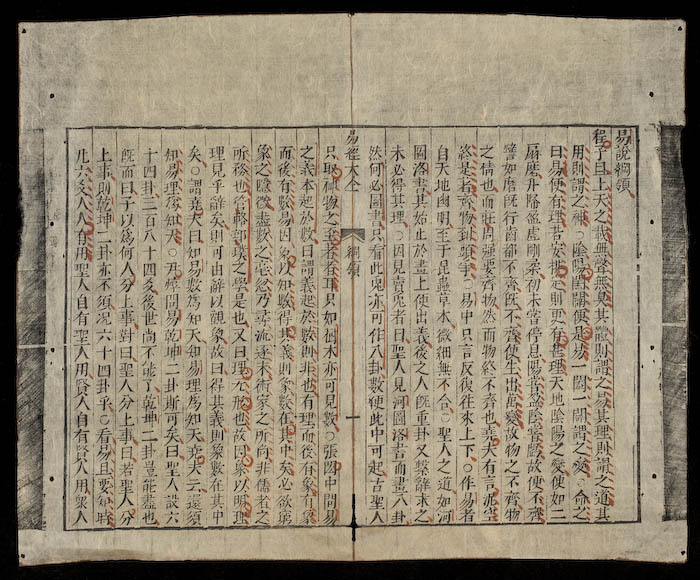 易說綱領
程子曰上天之載無聲無臭其體則謂之易其理則謂之道其
用則謂之神○陰陽闔闢便是易一闔一闢謂之變○命之
曰易便有理若安排定則更有甚理天地陰陽之變便如二
扇磨升降盈虛剛柔初未嘗停息陽常盈陰常虧故便不齊
譬如磨既行齒都不齊既不齊便生出萬變故物之不齊物
之情也而莊周強要齊物然而物終不齊也堯夫有言泥空
終是著齊物到頭爭○易中只言反復往來上下○作易者
自天地幽明至于昆蟲草木微細無不合○聖人之道如河
圖洛書其始止於畫上便出義後之人既重卦又繫辭求之
未必得其理○因見賣兎者曰聖人見河圖洛書而畫八卦
然何必圖書只看此兎亦可作八卦數便此中可起古聖人
易經大全 綱領 一
只取神物之至著者耳只如樹木亦可見數○張閎中問易
之義本起於數曰謂義起於數則非也有理而後有象有象
而後有數易因象以知數得其義則象數在其中矣必欲窮
象之隱微盡數之毫忽乃尋流逐末術家之所尚非儒者之
所務也管輅郭璞之學是也又曰理无形也故因象以明理
理見乎辭矣則可由辭以觀象故曰得其義則象數在其中
矣○謂堯夫曰知易數為知天知易理為知天堯夫云還須
知易理為知天○尹焞問易乾坤二卦斯可矣曰聖人設六
十四卦三百八十四爻後世尚不能了乾坤二卦豈能盡也
既而曰子以為何人分上事對曰聖人分上事曰若聖人分
上事則乾坤二卦亦不須況六十四卦乎○看易且要知時
凡六爻人人有用聖人自有聖人用賢人自有賢人用衆人